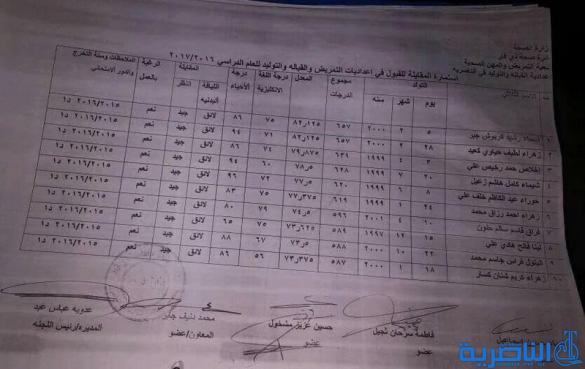 وزارة الصحة
دائرة صحة ذي قار
شعبة التمريض والمهن الصحية
اعدادية القبالة والتوليد في الناصرية
استمارة المقابلة للقبول في اعداديات التمريض والقبالة والتوليد للعام الدراسي ٢٠١٧/٢٠١٦
ت التولد مجموع الدرجات المعدل درجة اللغة الانكليزية درجة الأحياء المقابلة الرغبة بالعمل الملاحظات وسنة التخرج والدور الامتحاني
يوم شهر سنه اللياقة البدنيه النظر
١ رشيد جبر ٥ ٢ ٢٠٠٠ ٦٥٧ ٨٢,١٢٥ ٧٥ ٨٦ لائق جيد نعم ٢٠١٦/٢٠١٥ د١
٢ زهراء لطيف ٢٨ ٢ ٢٠٠٠ ٦٥٧ ٨٢,١٢٥ ٧١ ٩٤ لائق جيد نعم ٢٠١٦/٢٠١٥ د١
٣ اخلاص حمد علي ٣ ٤ ١٩٩٩ ٦٣٩ ٧٩,٨٧٥ ٧٤ ٨٦ لائق جيد نعم ٢٠١٦/٢٠١٥ د١
٤ شيماء كامل هاشم ٢٠ ٧ ١٩٩٩ ٧٨,٥ ٦٠ ٩٤ لائق جيد نعم ٢٠١٦/٢٠١٥ د١
٥ حوراء عبد الكاظم خلف علي ٨ ٦ ١٩٩٩ ٦٢٠ ٧٧,٥ ٧٢ ٩٦ لائق جيد نعم ٢٠١٦/٢٠١٥ د١
٦ زهراء احمد رزاق محمد ٢٤ ١ ١٩٩٩ ٦١٩ ٧٧,٣٧٥ ٧٥ ٨٣ لائق جيد نعم ٢٠١٦/٢٠١٥ د١
٧ قاسم سالم ١٠ ٤ ٢٠٠١ ٥٩٦ ٧٤,٥ ٧٩ ٨٠ لائق جيد نعم ٢٠١٦/٢٠١٥ د١
٨ لينا فالح هادي علي ١٥ ١٢ ١٩٩٧ ٥٨٩ ٧٥ ٦٥ لائق جيد نعم ٢٠١٦/٢٠١٥ د١
٩ البتول فراس جاسم محمد ٢٢ ١٠ ٢٠٠٠ ٥٨٨ ٧٣,٥ ٦٧ ٨٨ لائق جيد نعم ٢٠١٦/٢٠١٥ د١
١٠ زهراء كريم ١٨ ١ ٢٠٠٠ ٥٨٧ ٧٣,٣٧٥ ٥٦ ٨٦ لائق جيد نعم ٢٠١٦/٢٠١٥ د١
اسماعيل
فاطمة سرحان ثجيل
عضو
حسين عزيز مشحول
عضو
محمد نايف
المعاون/عضو
عدويه عباس عبد
المديره/رئيس اللجنه
الناصرية